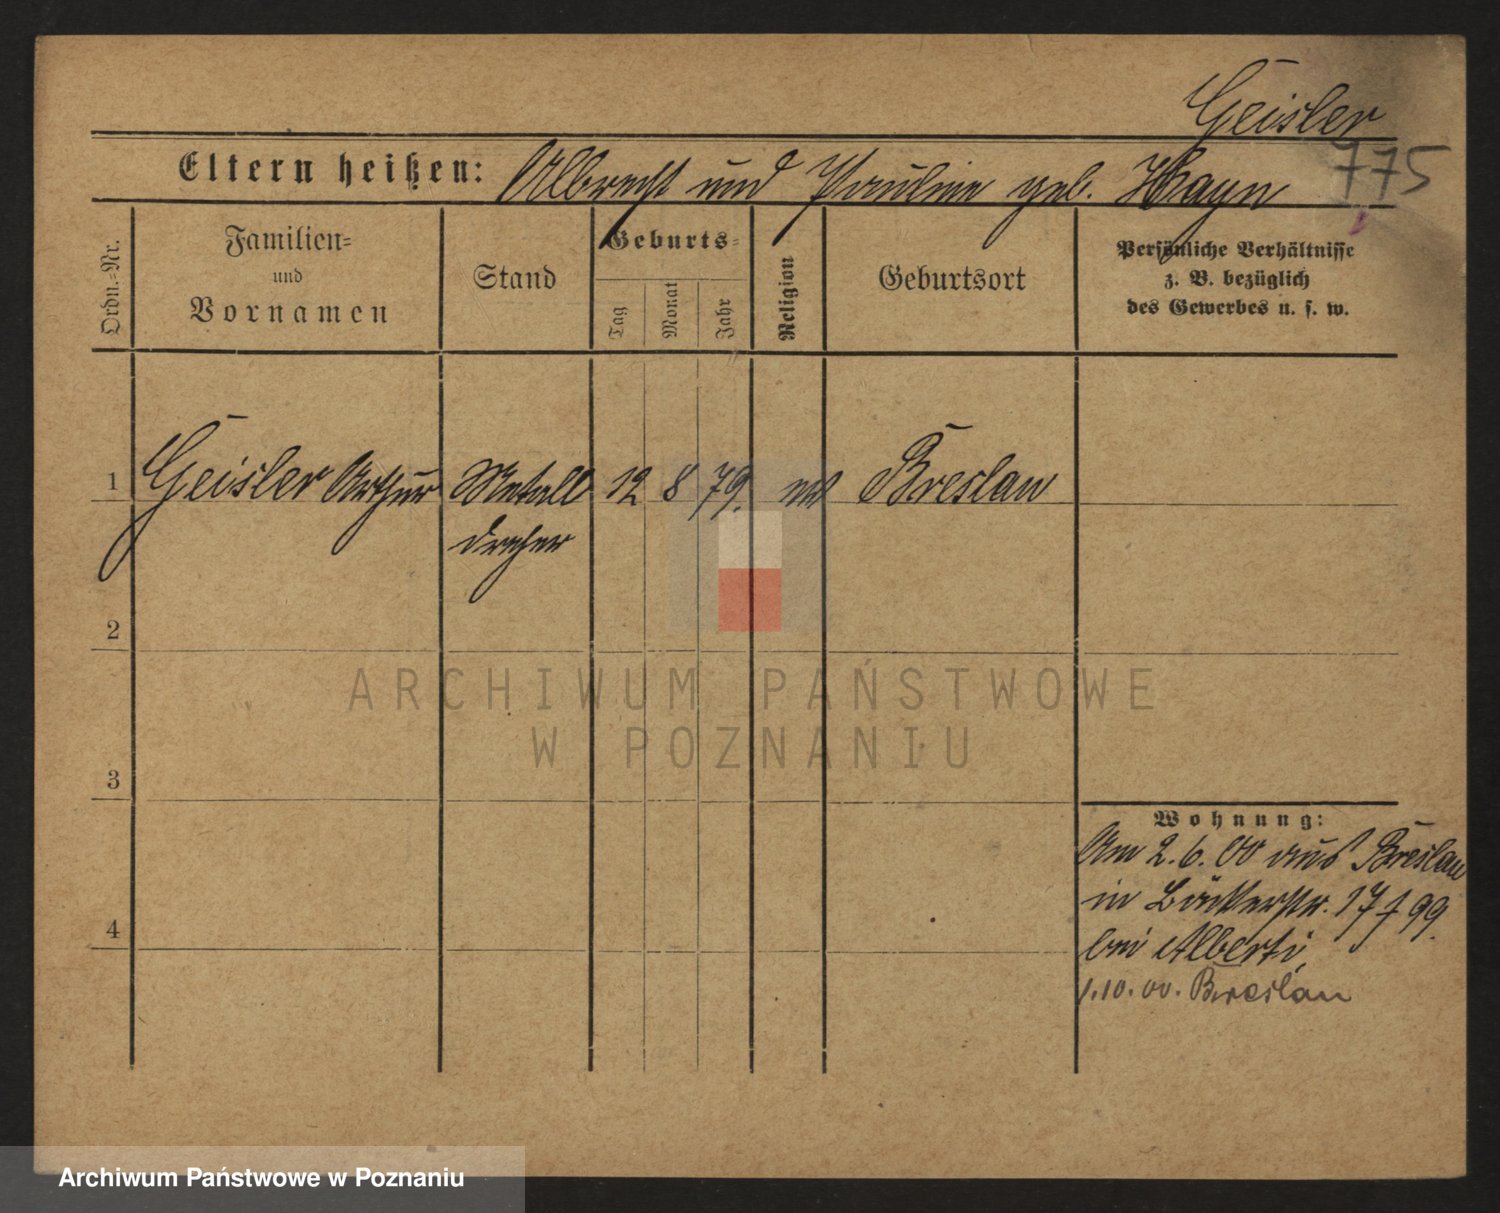 Geisler
775
Eltern heißen: Albrecht und Pauline geb. Hayn
Ordn.-Nr.
Familien-
und
Vornamen
Stand
Geburts-
Tag
Monat
Jahr
Religion
Geburtsort
Persönliche Verhältnisse
z. B. bezüglich
des Gewerbes u. s. w.
1 Geisler Arthur Metall 12 8 79. ev Breslau
dreher
2
3
4
Wohnung:
Am 2.6.00 aus Breslau
in Bäckerstr. 17 f 99.
bei Alberti,
1.10.00. Breslau
ARCHIWUM PAŃSTWOWE
W POZNANIU
Archiwum Państwowe w Poznaniu